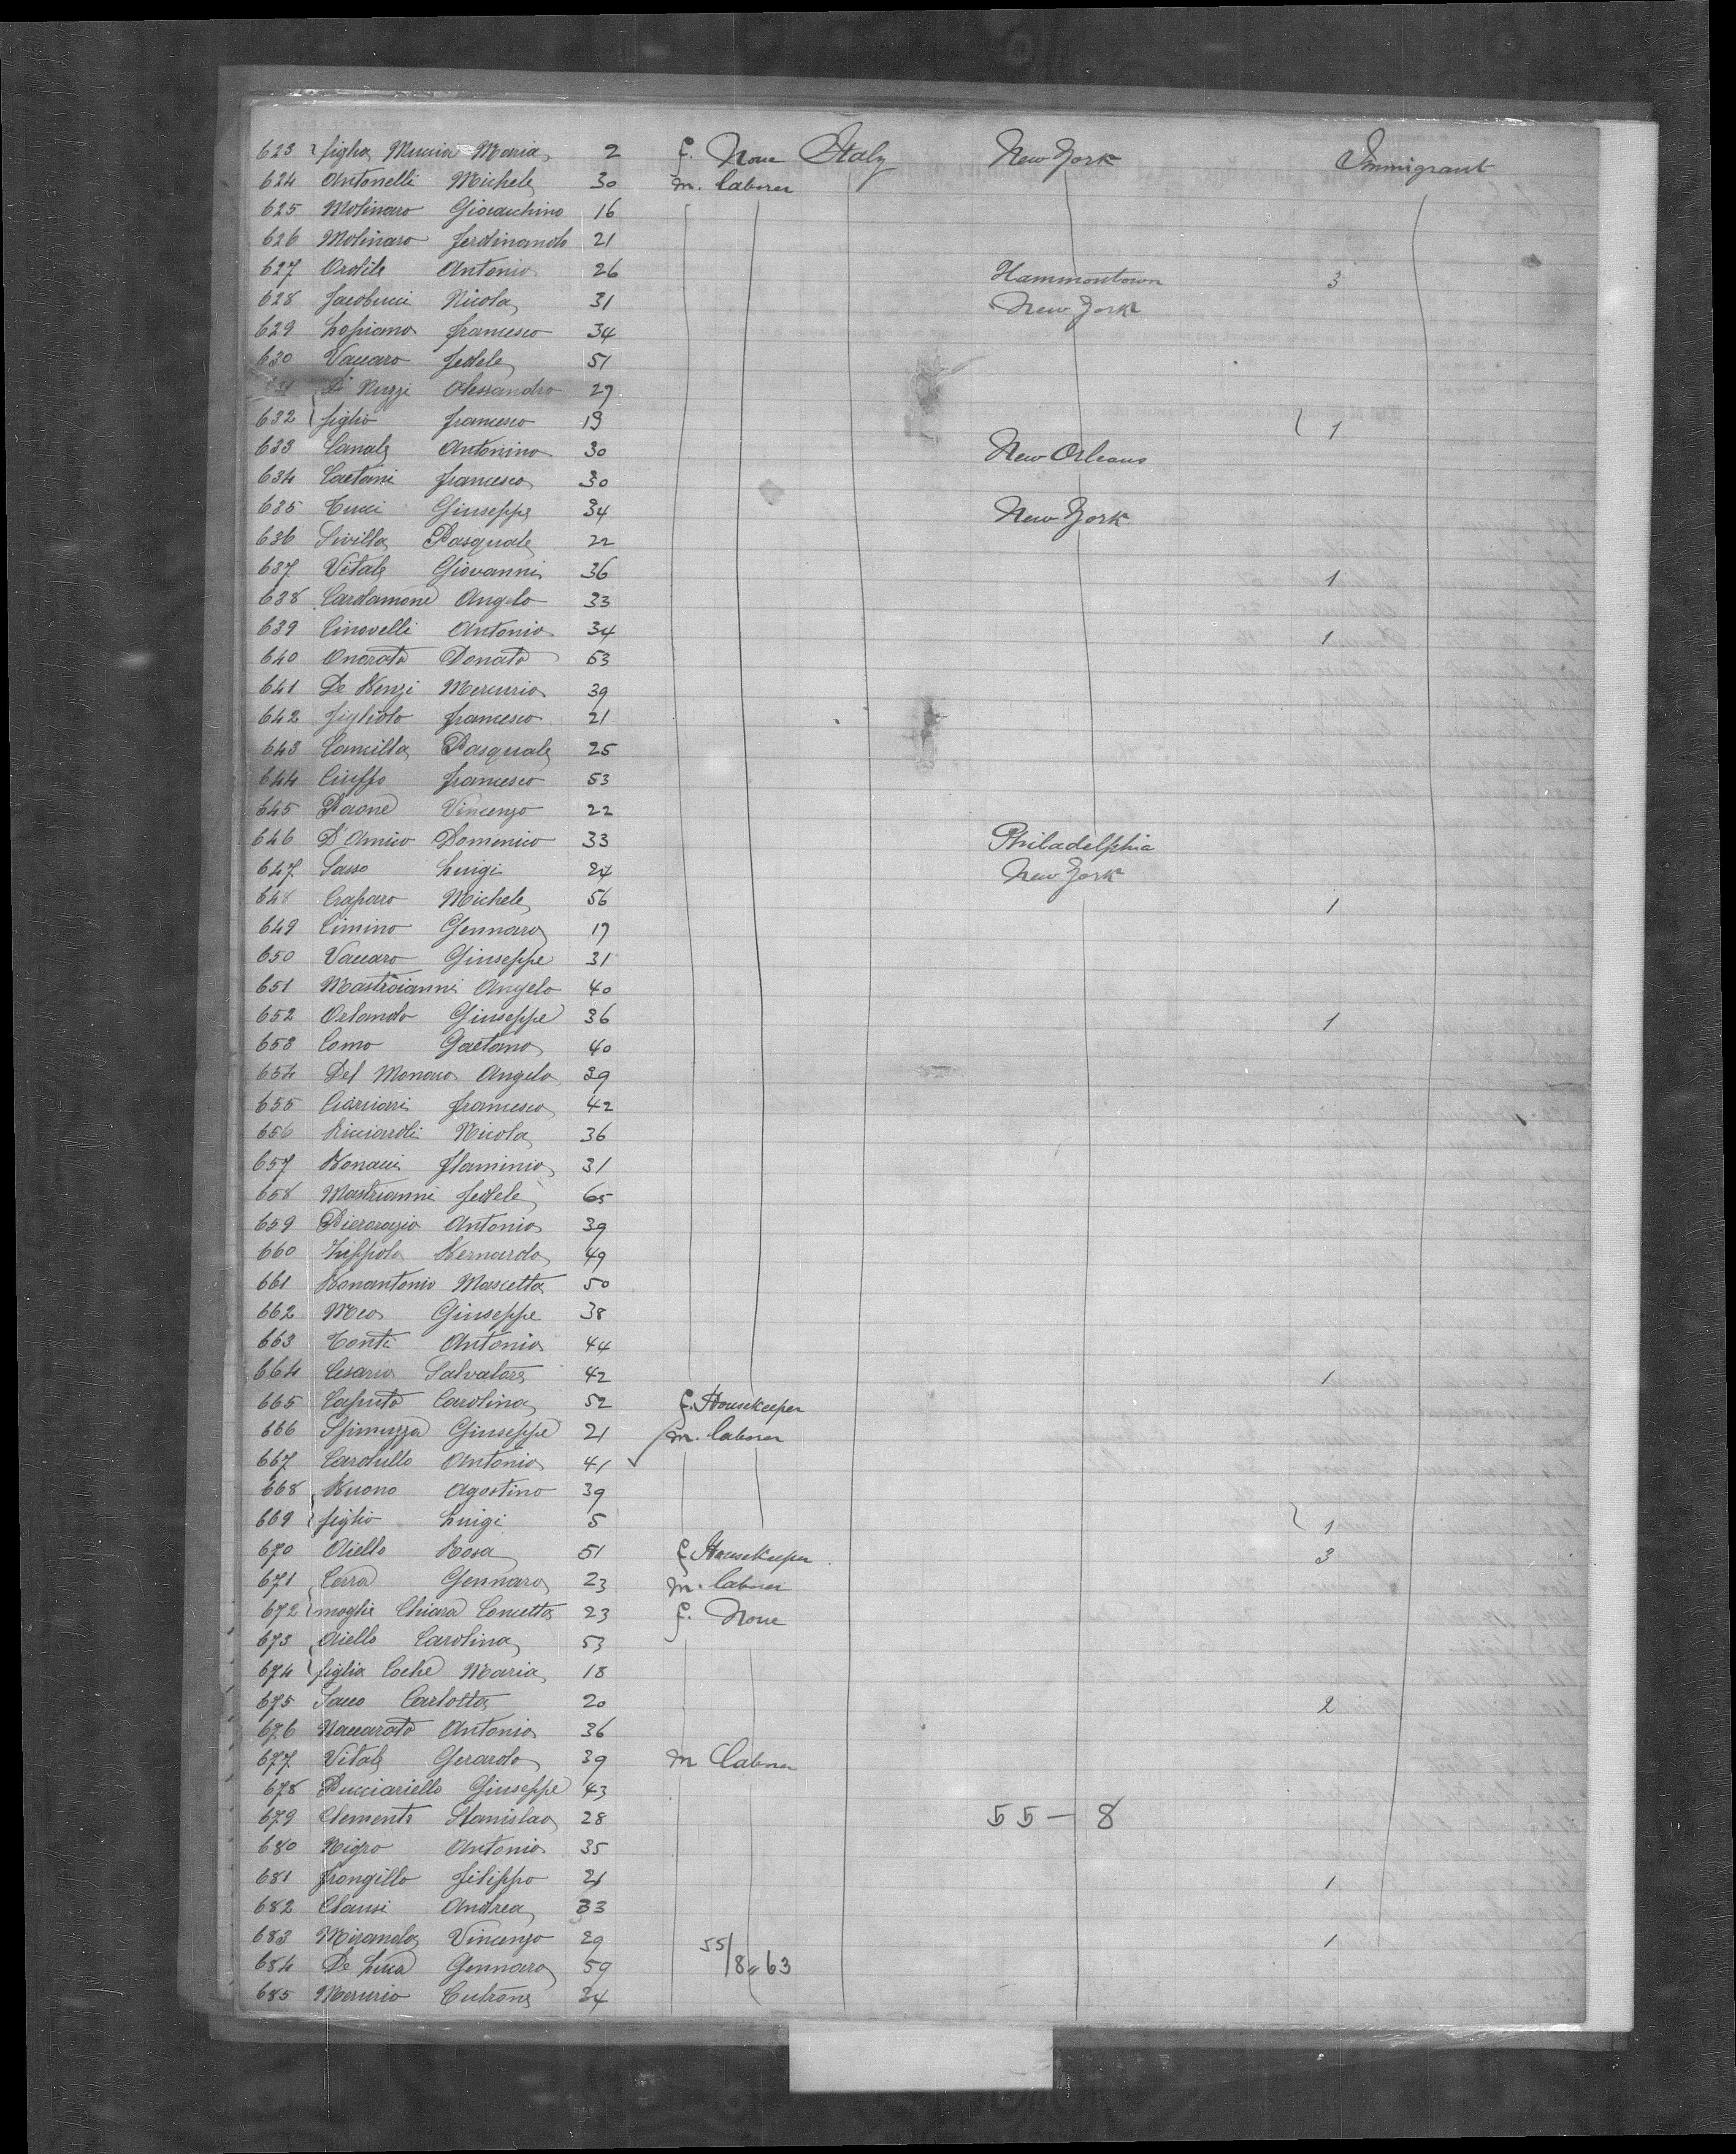 623 figlia Muccia Maria 2 f. None Italy New York Immigrant
624 Antonelli Michele 30 m. laborer
625 Molinaro Gioacchino 16
626 Molinaro Ferdinando 21
627 Antonio 26 Hammontown 3
628 Jacobucci Nicola 31 New York
629 Lopiano Francesco 34
630 Vaccaro Fedele 51
631 Di Nuzzi Alessandro 27
632 figlio Francesco 19 1
633 Canale Antonino 30 New Orleans
634 Caetani Francesco 30
635 Tucci Giuseppe 34 New York
636 Sivilla Pasquale 22
637 Vitale Giovanni 36 1
638 Cardamone Angelo 33
639 Cinovelli Antonio 34 1
640 Onorato Donato 53
641 De Renzi Mercurio 39
642 Figliolo Francesco 21
643 Camilla Pasquale 25
644 Ciuffo Francesco 53
645 Paone Vincenzo 22
646 D'Amico Domenico 33 Philadelphia
647 Sasso Luigi 24 New York
648 Craparo Michele 56 1
649 Cimino Gennaro 17
650 Vaccaro Giuseppe 31
651 Mastroianni Angelo 40
652 Orlando Giuseppe 36 1
653 Como Gaetano 40
654 Del Monaco Angelo 39
655 Francesco 42
656 Ricciardi Nicola 36
657 Bonacci Flaminio 31
658 Mastrianni Fedele 65
659 Pierorazio Antonio 39
660 Zuppolo Bernardo 49
661 Bonantonio Mascetta 50
662 Meo Giuseppe 38
663 Conti Antonio 44
664 Cesario Salvatore 42 1
665 Caputo Carolina 52 f. Housekeeper
666 Spinuzza Giuseppe 21 m. laborer
667 Cardullo Antonio 41
668 Buono Agostino 39
669 figlio Luigi 5 1
670 Aiello Rosa 51 f. Housekeeper 3
671 Cerra Gennaro 23 m. laborer
672 moglie Chiara Concetta 23 f. None
673 Aiello Carolina 53
674 figlia Coche Maria 18
675 Sacco Carlotta 20 2
676 Naccarato Antonio 36
677 Vitale Gerardo 39 m laborer
678 Pucciariello Giuseppe 43
679 Clemente Stanislao 28 55-8
680 Nigro Antonio 35
681 Frongillo Filippo 21 1
682 Clausi Andrea 33
683 Miranda Vincenzo 29 1
684 De Luca Gennaro 59 55/8,63
685 Mercurio Cutrone 24